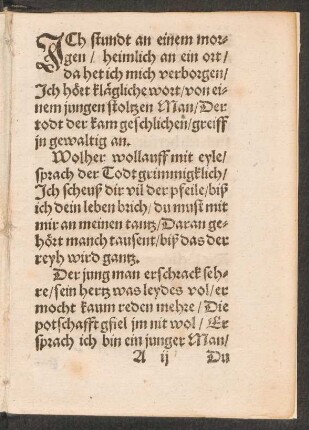 ICh stundt an einem mor-
gen / heimlich an ein ort /
da het ich mich verborgen /
Ich hört klägliche wort / von ei-
nem jungen stoltzen Man / Der
todt der kam geschlichen / greiff
jn gewaltig an.
Wolher wollauff mit eyle /
sprach der Todt grimmigklich /
Ich scheuß dir vil der pfeile / biß
ich dein leben brich / du must mit
mir an meinen tantz / Daran ge-
hört manch tausent / biß das der
reyh wird gantz.
Der jung man erschrack seh-
re / sein hertz was leydes vol / er
mocht kaum reden mehre / Die
potschafft gfiel jm nit wol / Er
sprach ich bin ein junger Man /
A ij Du